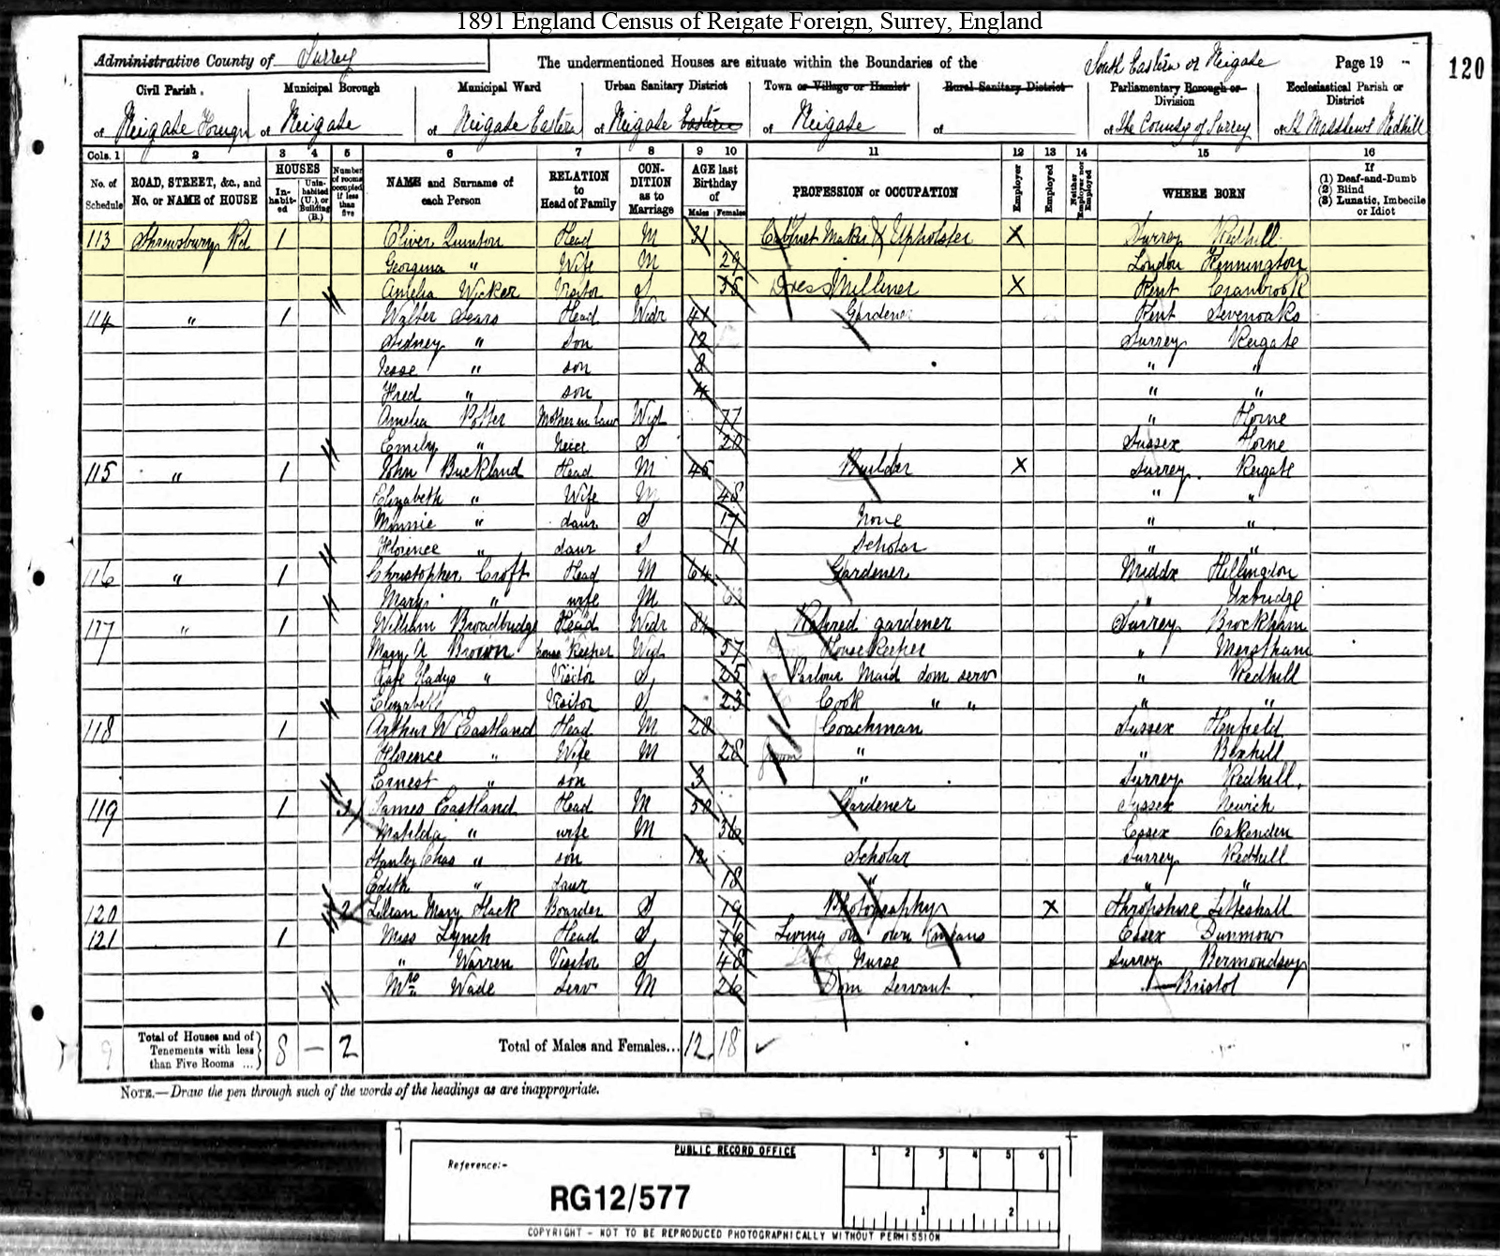 1891 England Census of Reigate Foreign, Surrey, England
Administrative County of Surrey The undermentioned Houses are situate within the Boundaries of the South Eastern or Reigate Page 19 120
Civil Parish Municipal Borough Municipal Ward Urban Sanitary District Town or Village or Hamlet Rural Sanitary District Parliamentary Borough or Division Ecclesiastical Parish or District
of Reigate Foreign of Reigate of Reigate Eastern of Reigate Eastern of Reigate of of The County of Surrey of St Matthews Redhill
Cols. 1 2 3 4 5 6 7 8 9 10 11 12 13 14 15 16
No. of Schedule ROAD, STREET, &c., and No. or NAME of HOUSE HOUSES In-habit-ed Unin-habited (U.), or Building (B.) Number of rooms occupied if less than five NAME and Surname of each Person RELATION to Head of Family CON-DITION as to Marriage AGE last Birthday of Males Females PROFESSION or OCCUPATION Employer Employed Neither Employer nor Employed WHERE BORN If (1) Deaf-and-Dumb (2) Blind (3) Lunatic, Imbecile or Idiot
113 Shrewsbury Rd 1 Oliver Quinton Head M 31 Cabinet Maker & Upholster X Surrey Redhill
Georgina " Wife M 29 London Kennington
Amelia Wicker Visitor S 35 Dress Milliner X Kent Cranbrook
114 " 1 Walter Sears Head Widr 41 Gardener Kent Sevenoaks
Sidney " Son 12 Surrey Reigate
Jesse " son 8 " "
Fred " son 4 " "
Amelia Potter Mother in Law Wid 77 " Horne
Emily " Neice S 20 Sussex Horne
115 " 1 John Buckland Head M 45 Builder X Surrey Reigate
Elizabeth " Wife M 48 " "
Minnie " daur S 17 None " "
Florence " daur S 11 Scholar " "
116 " 1 Christopher Croft Head M 64 Gardener Middx Hillington
Mary " wife M " Uxbridge
117 " 1 William Broadbridge Head Widr 84 Retired gardener Surrey Brockham
Mary A Brown house Keeper Wid 57 House Keeper " Merstham
Kate Gladys " Visitor S 25 Parlour Maid dom serv " Redhill
Elizabeth Visitor S 23 Cook " " " "
118 1 Arthur W Eastland Head M 28 Coachman Sussex Henfield
Florence " Wife M 28 " " Bexhill
Ernest " son 3 " Surrey Redhill
119 1 3 James Eastland Head M 58 Gardener Sussex Newick
Matilda " wife M 56 Essex
Stanley Chas " son 12 Scholar Surrey Redhill
Edith " daur 18 " " "
120 2 Lilian Mary Hack Boarder S 19 Photography X Shropshire Lilleshall
121 1 Miss Lynch Head S 76 Living on own means Essex Dunmow
" Warren Visitor S 48 Nurse Surrey Bermondsey
Mrs Wade Serv M 26 Dom Servant Bristol
9 Total of Houses and of Tenements with less than Five Rooms ... 8 — 2 Total of Males and Females... 12 18
NOTE.—Draw the pen through such of the words of the headings as are inappropriate.
PUBLIC RECORD OFFICE 1 2 3 4 5 6
Reference:-
RG12/577
1 2
COPYRIGHT - NOT TO BE REPRODUCED PHOTOGRAPHICALLY WITHOUT PERMISSION